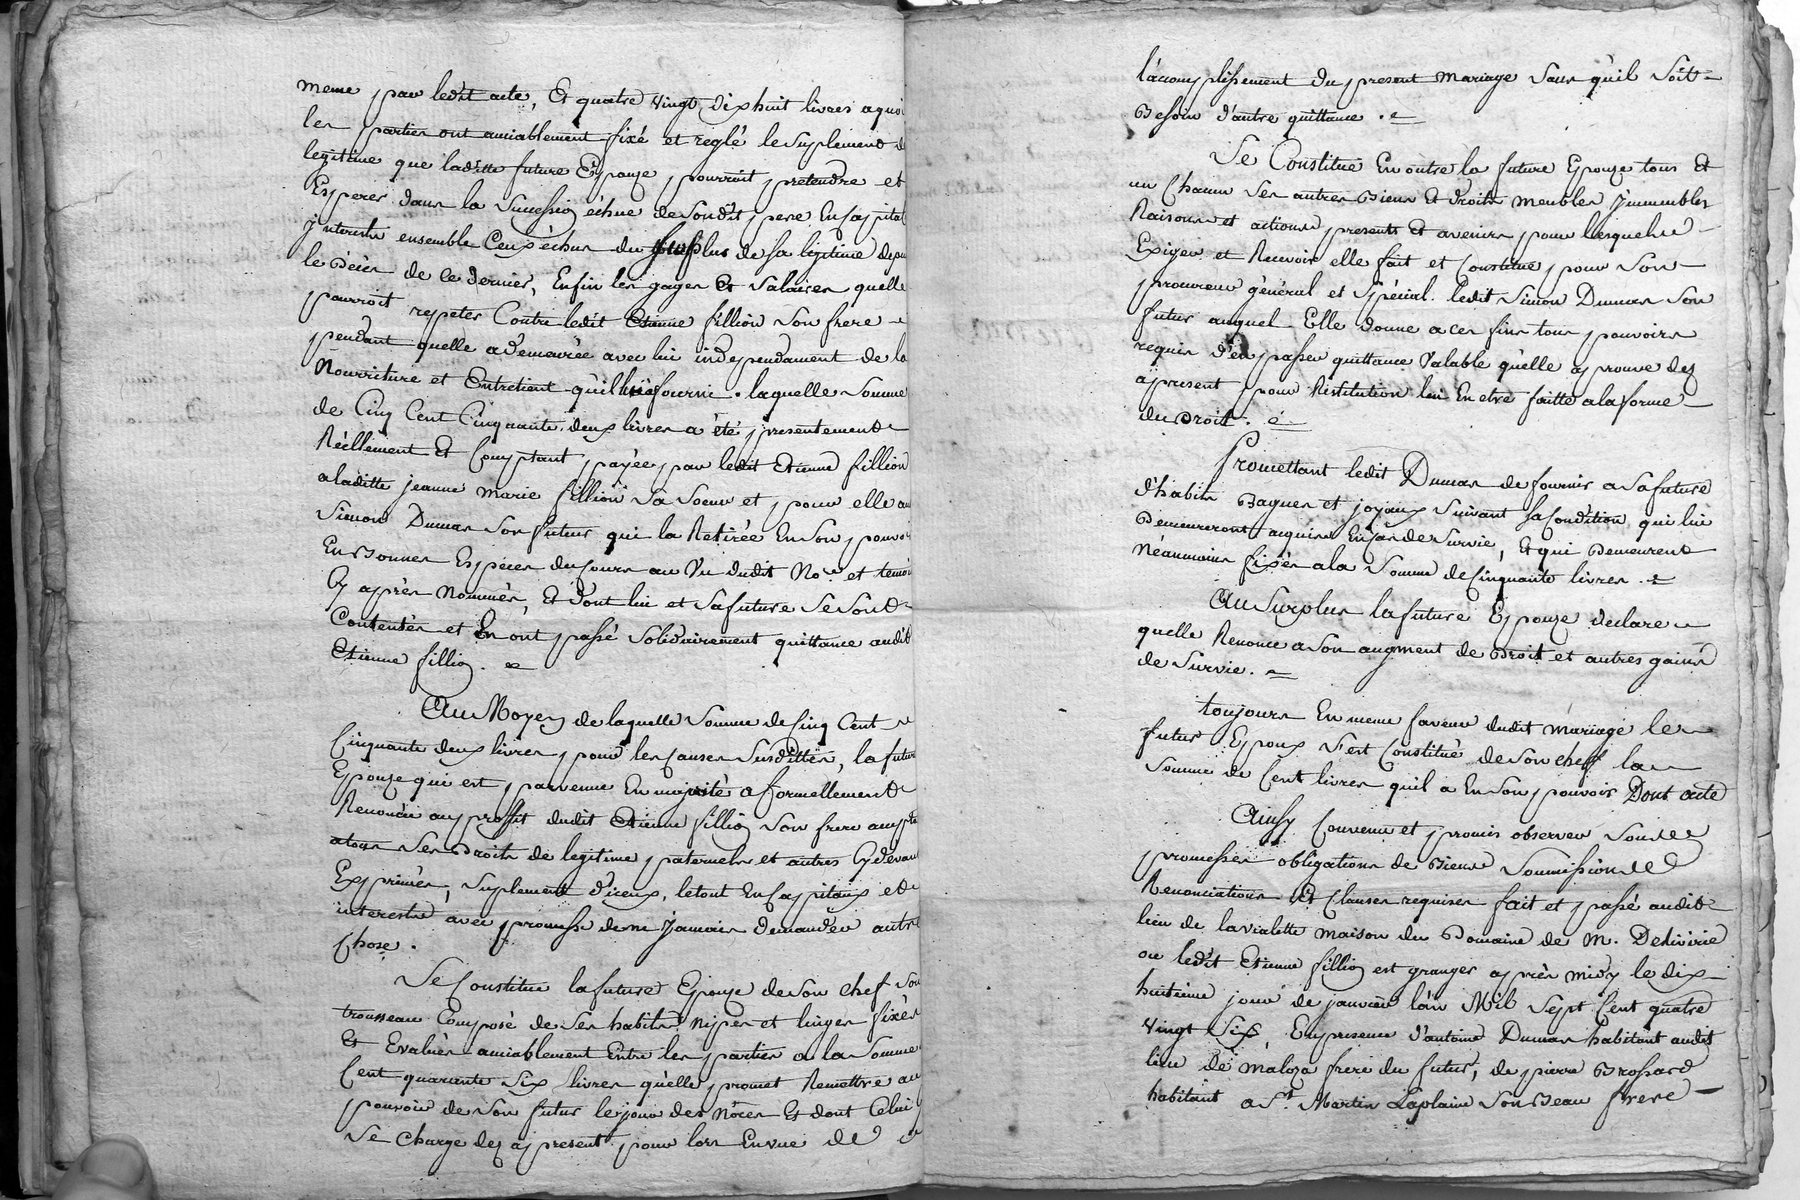 meme par ledit acte, Et quatre vingt dix huit livres aquoi
les parties ont amiablement fixé et reglé le suplement de
legitime que laditte future Epouze pourroit pretendre et
Esperer dans la succession échue de sondit pere En capital
jnterests ensemble Ceux échus du surplus de sa legitime depuis
le décès de ce dernier, Enfin les gages Et salaires quelle
pourroit repeter Contre ledit Etienne fillion son frere
pendant quelle a demeurée avec lui independament de la
Nourriture et Entretient quil lui a fourni. laquelle somme
de Cinq Cent Cinquante deux livres a été presentement
Réellement Et Comptant payée par ledit Etienne fillion
a laditte jeanne marie fillion sa soeur et pour elle au
simon Dumas son futur qui la Retirée En son pouvoir
En Bonnes Especes du Cours au Vu dudit No.re et temoins
Cy après Nommés, Et dont lui et sa future se sont
Contentés et En ont passé solidairement quittance audit
Etienne fillion.
Au Moyen de laquelle somme de Cinq Cent
Cinquante deux livres pour les causes susdittes, la future
Epouze qui est parvenue En majorité a formellement
Renoncée au proffit dudit Etienne fillion son frere accepte
a tous ses Droits de legitime paternels et autres Cy devant
Exprimés, suplement d'iceux, le tout En Capitaux et
interests avec promesse de ne jamais demander autre
Chose.
Se Constitue la future Epouze de son chef son
trousseau Composé de ses habits Nipes et linges fixés
Et Evalués amiablement Entre les parties a la somme
Cent quarante six livres quelle promet Remettre au
pouvoir de son futur le jour des Nôces Et dont Celui
se charge dez a present pour lors En vue de
l'accomplissement du present mariage sans qu'il soit
Besoin d'autre quittance.
Se Constitue En outre la future Epouze tous Et
un Chacun ses autres Biens Et droits meubles jmmeubles
Raisons et actions presents Et avenirs pour lesquels
Exiger et Recevoir elle fait et Constitue pour son
procureur général et spécial ledit Simon Dumas son
futur auquel Elle donne a ces fins tous pouvoirs
requis d'en passer quittance Valable qu'elle aprouve dez
apresent pour Restitution lui En etre faitte a la forme
du Droit.
Promettant ledit Dumas de fournir a sa future
d'habits Bagues et joyaux suivant sa Condition qui lui
Demeureront acquis En Cas de survie, Et qui Demeurent
Néanmoins fixés a la somme de Cinquante livres.
Au Surplus la future Epouze declare
quelle Renonce a son augment de Droit et autres gains
de survie.
toujours En meme faveur dudit mariage le
futur Epoux s'est Constitué de son chef la
somme de Cent livres quil a En son pouvoir Dont acte
Ainsy Convenu et promis observer sous
promesses obligations de Biens soumissions
Renonciations Et Clauses requises fait et passé audit
lieu de lavialette maison du Domaine de M. Delivirie
ou ledit Etienne fillion est granger après midy le dix
huitième jour de janvier l'an Mil Sept Cent quatre
vingt Six, En presence d'antoine Dumas habitant audit
lieu de maloza frere du futur, de pierre Brossard
habitant a St. Martin Laplaine son Beau frere